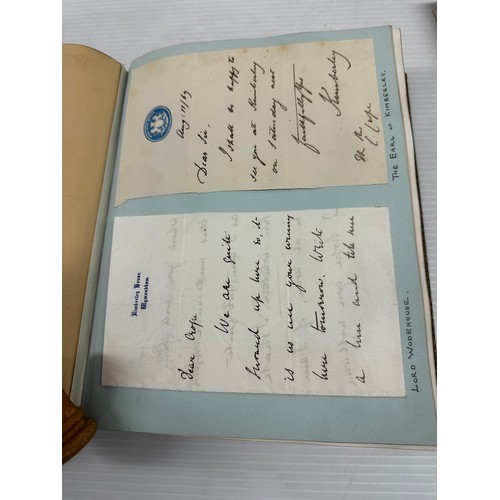 Aug: 12/69
Dear Sir,
I shall be happy to
see you at Kimberley
on Saturday next
faithfully yrs
Kimberley
THE EARL OF KIMBERLEY.
Kimberley House,
Wymondham.
Dear Crofse
We are quite
frowned up here so, it
is no use your coming
here tomorrow. Write
a line and tell me
LORD WODEHOUSE.